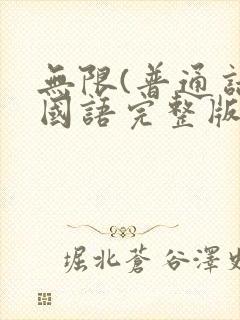 無限(普通
國語完整版
堀北蒼谷澤